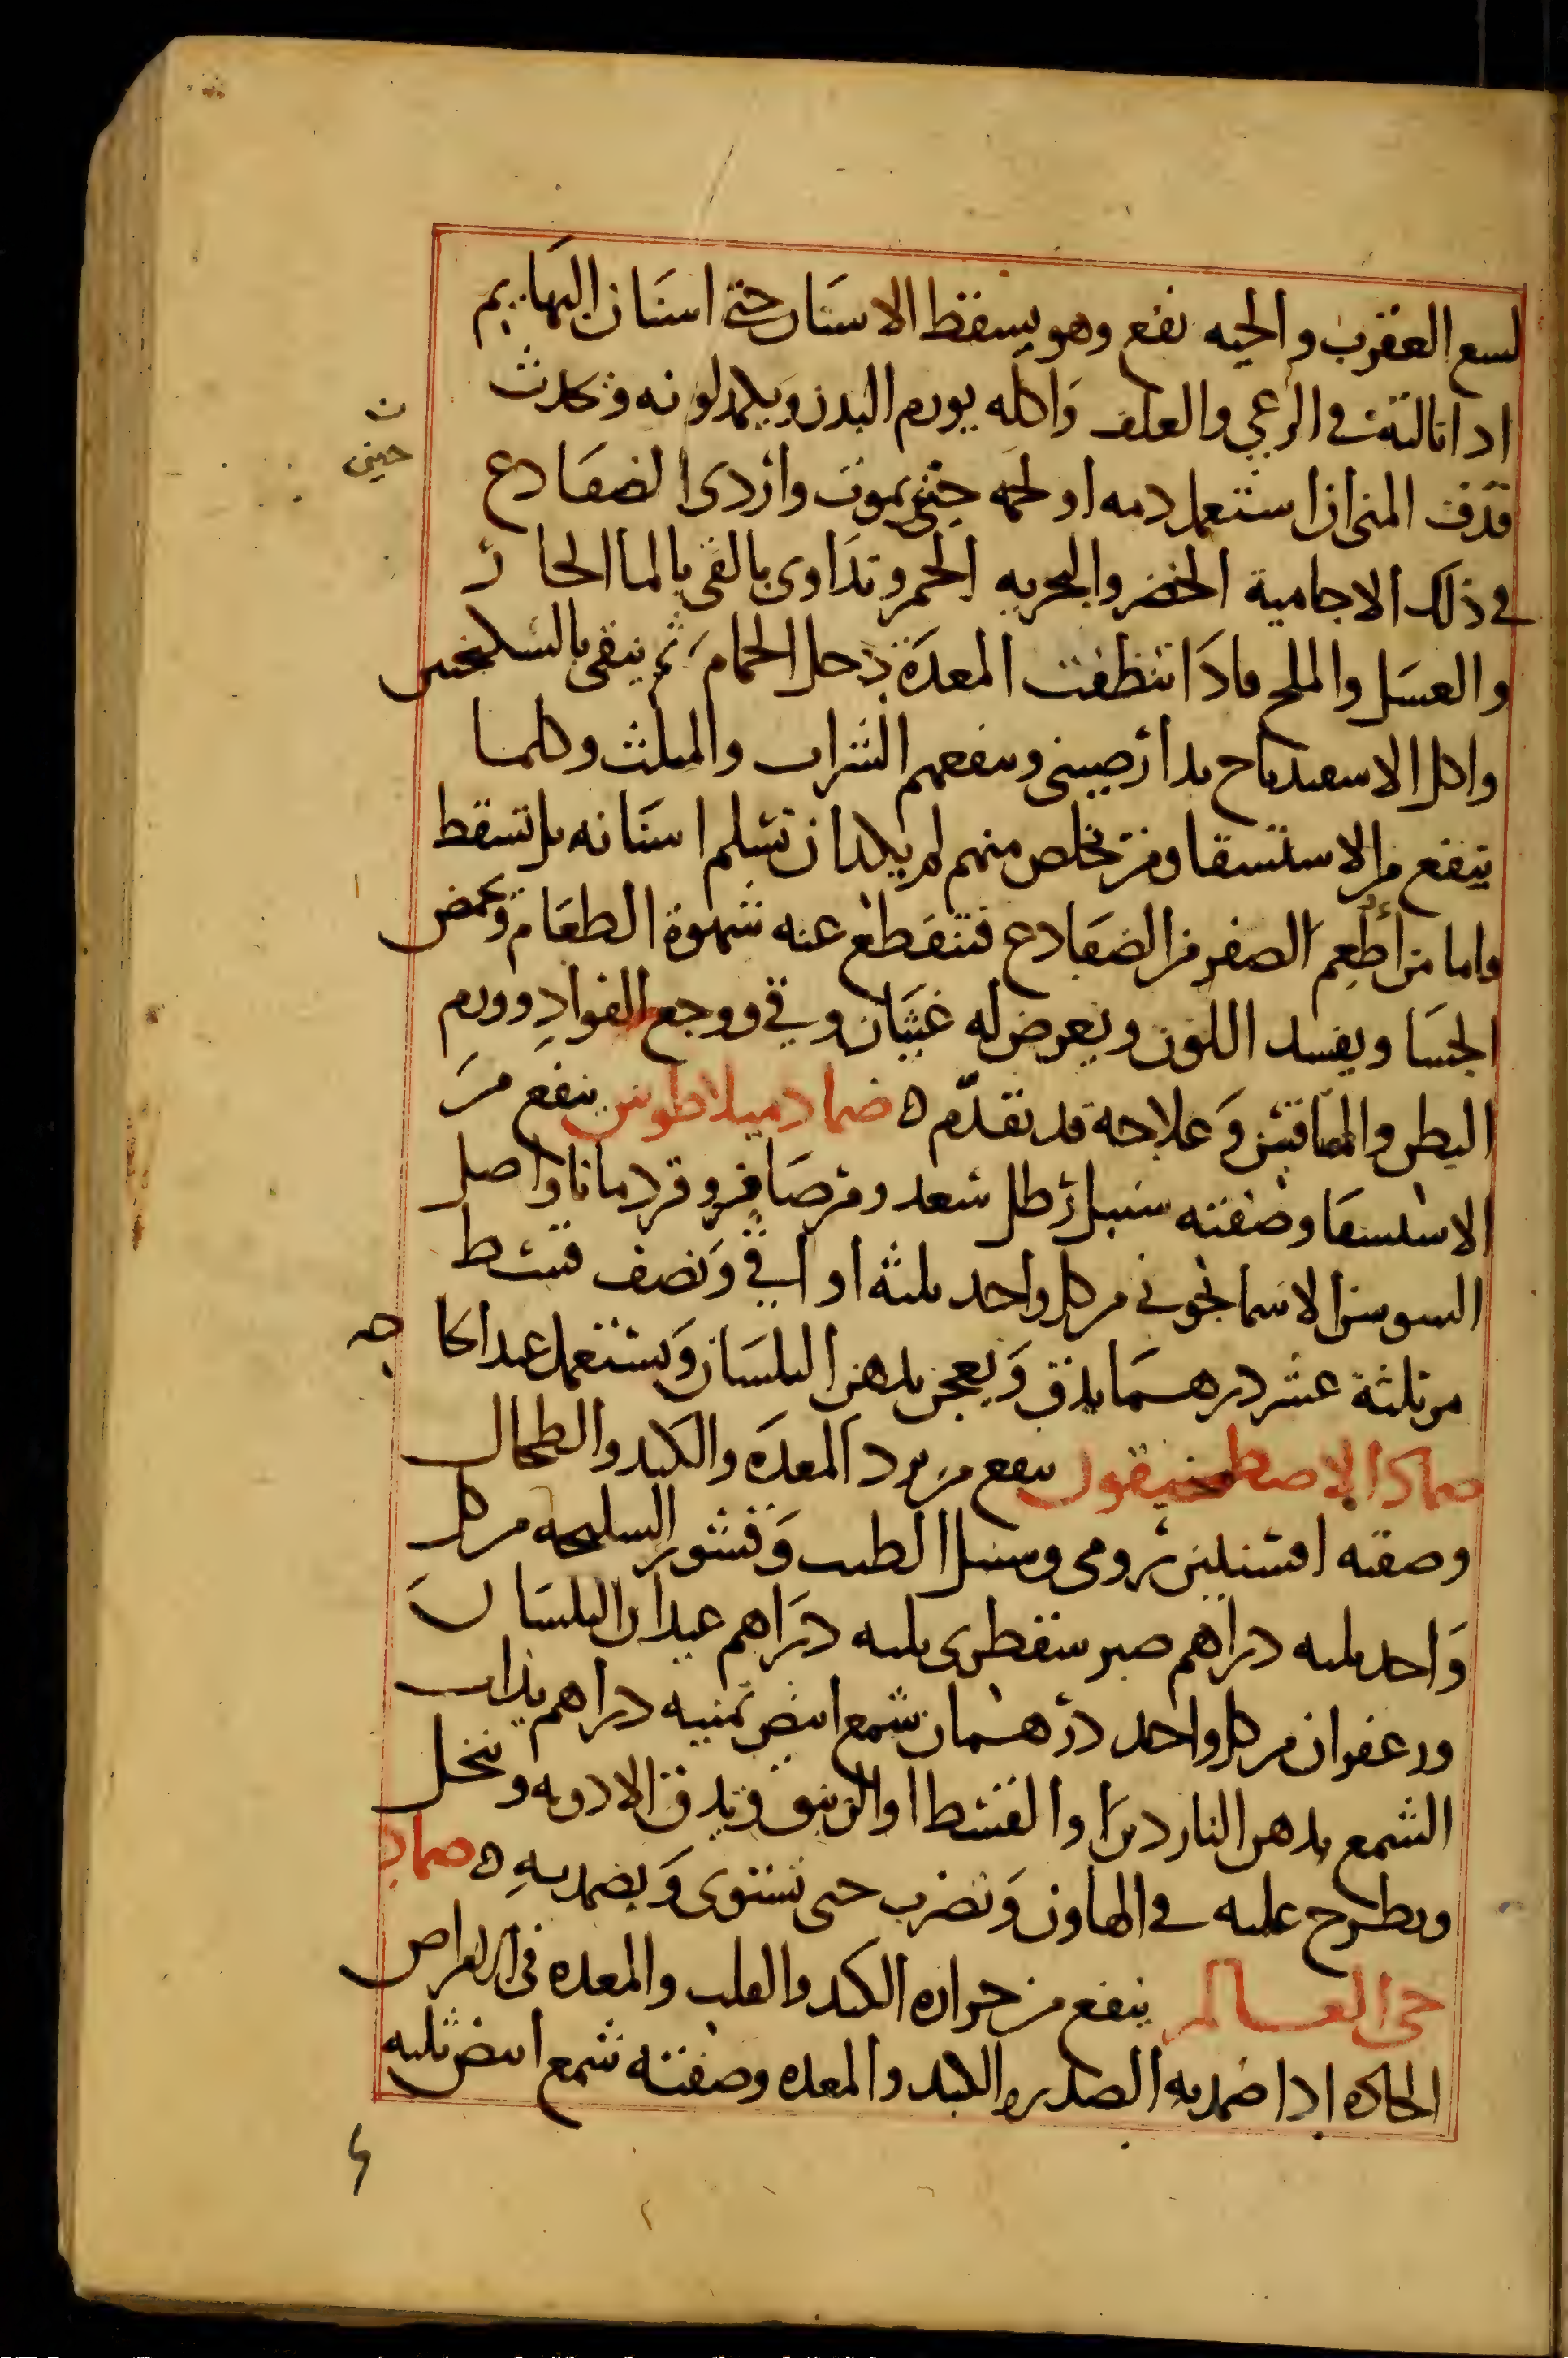 لسع العقرب والحيه نفع وهو يسقط الاسنان حتى اسنان البهايم
اذا نالته في الرعي والعلف واكله يورم البدن ويكمد لونه وتحدث
ن
حينى
قذف المنى ان استعمل دمه او لحمه حتى يموت واردى الضفادع
في ذلك الاجامية الخضر والبحريه الحمر وتداوى بالقى بالما الحار
والعسل والملح فاذا انتظفت المعدة دخل الحمام ثم ينقى بالسكنجبين
واكل الاسفيدباج بدارصينى وينفعهم الشراب والمثلث وكلما
ينفع من الاستسقا ومن تخلص منهم لم يكد ان تسلم اسنانه بل تسقط
واما من أطعم الصفر من الضفادع فتنقطع عنه شهوة الطعام وتحمض
الجسا ويفسد اللون ويعرض له غثيان وقي ووجع الفواد وورم
البطن والساقين وعلاجه قد تقدم ه ضماد ميلاطوس ينفع من
الاستسقا وصفته سنبل رطل سعد ومر صافى وقردمانا واصل
السوسن الاسمانجونى من كل واحد ثلثه اواقي ونصف قسط
مر ثلثة عشر درهما يدق ويعجن بدهن البلسان ويستعمل عند الحا
جه
ضماد الاصطمخيقون ينفع من برد المعده والكبد والطحال
وصفته افسنتين رومى وسنبل الطيب وقشور السليخه من كل
واحد ثلثه دراهم صبر سقطرى ثلثه دراهم عيدان البلسان
وزعفران من كل واحد درهمان شمع ابيض ثمنيه دراهم يذاب
الشمع بدهن الناردين او القسط او الزنبق ويدق الادويه وتنخل
ويطرح عليه في الهاون وتضرب حتى تستوى ويضمد به ه ضماد
حى العالم ينفع من حراره الكبد والقلب والمعده فى الامراض
الحاده اذا ضمد به الصدر والكبد والمعده وصفته شمع ابيض ثلثه